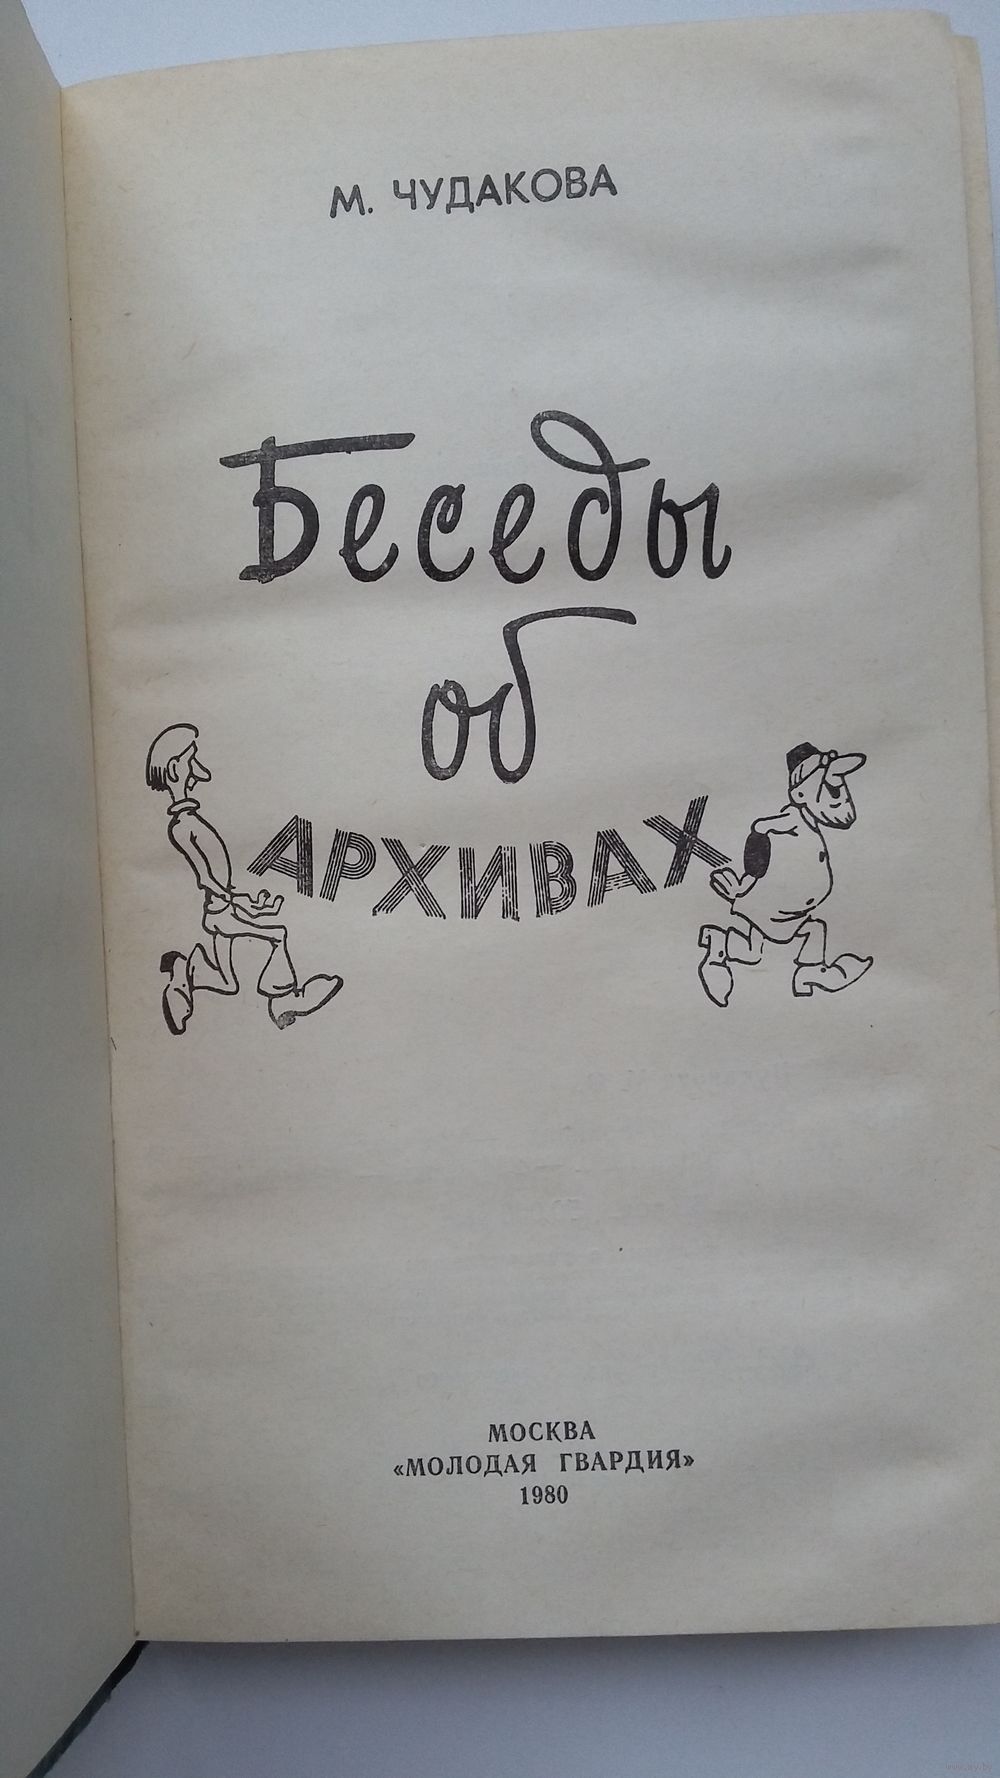 М. ЧУДАКОВА
Беседы
об
АРХИВАХ
МОСКВА
«МОЛОДАЯ ГВАРДИЯ»
1980